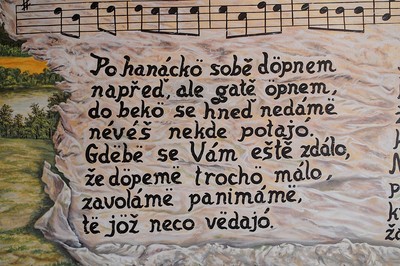 Po hanáckö sobě döpnem
napřeď, ale gatě öpnem,
do bekö se hneď nedámë
nëvëš nekde potajó.
Gdëbë se Vám eště zdálo,
že döpemë trocho málo,
zavolámë panimámë,
të jöž neco vëdajó.